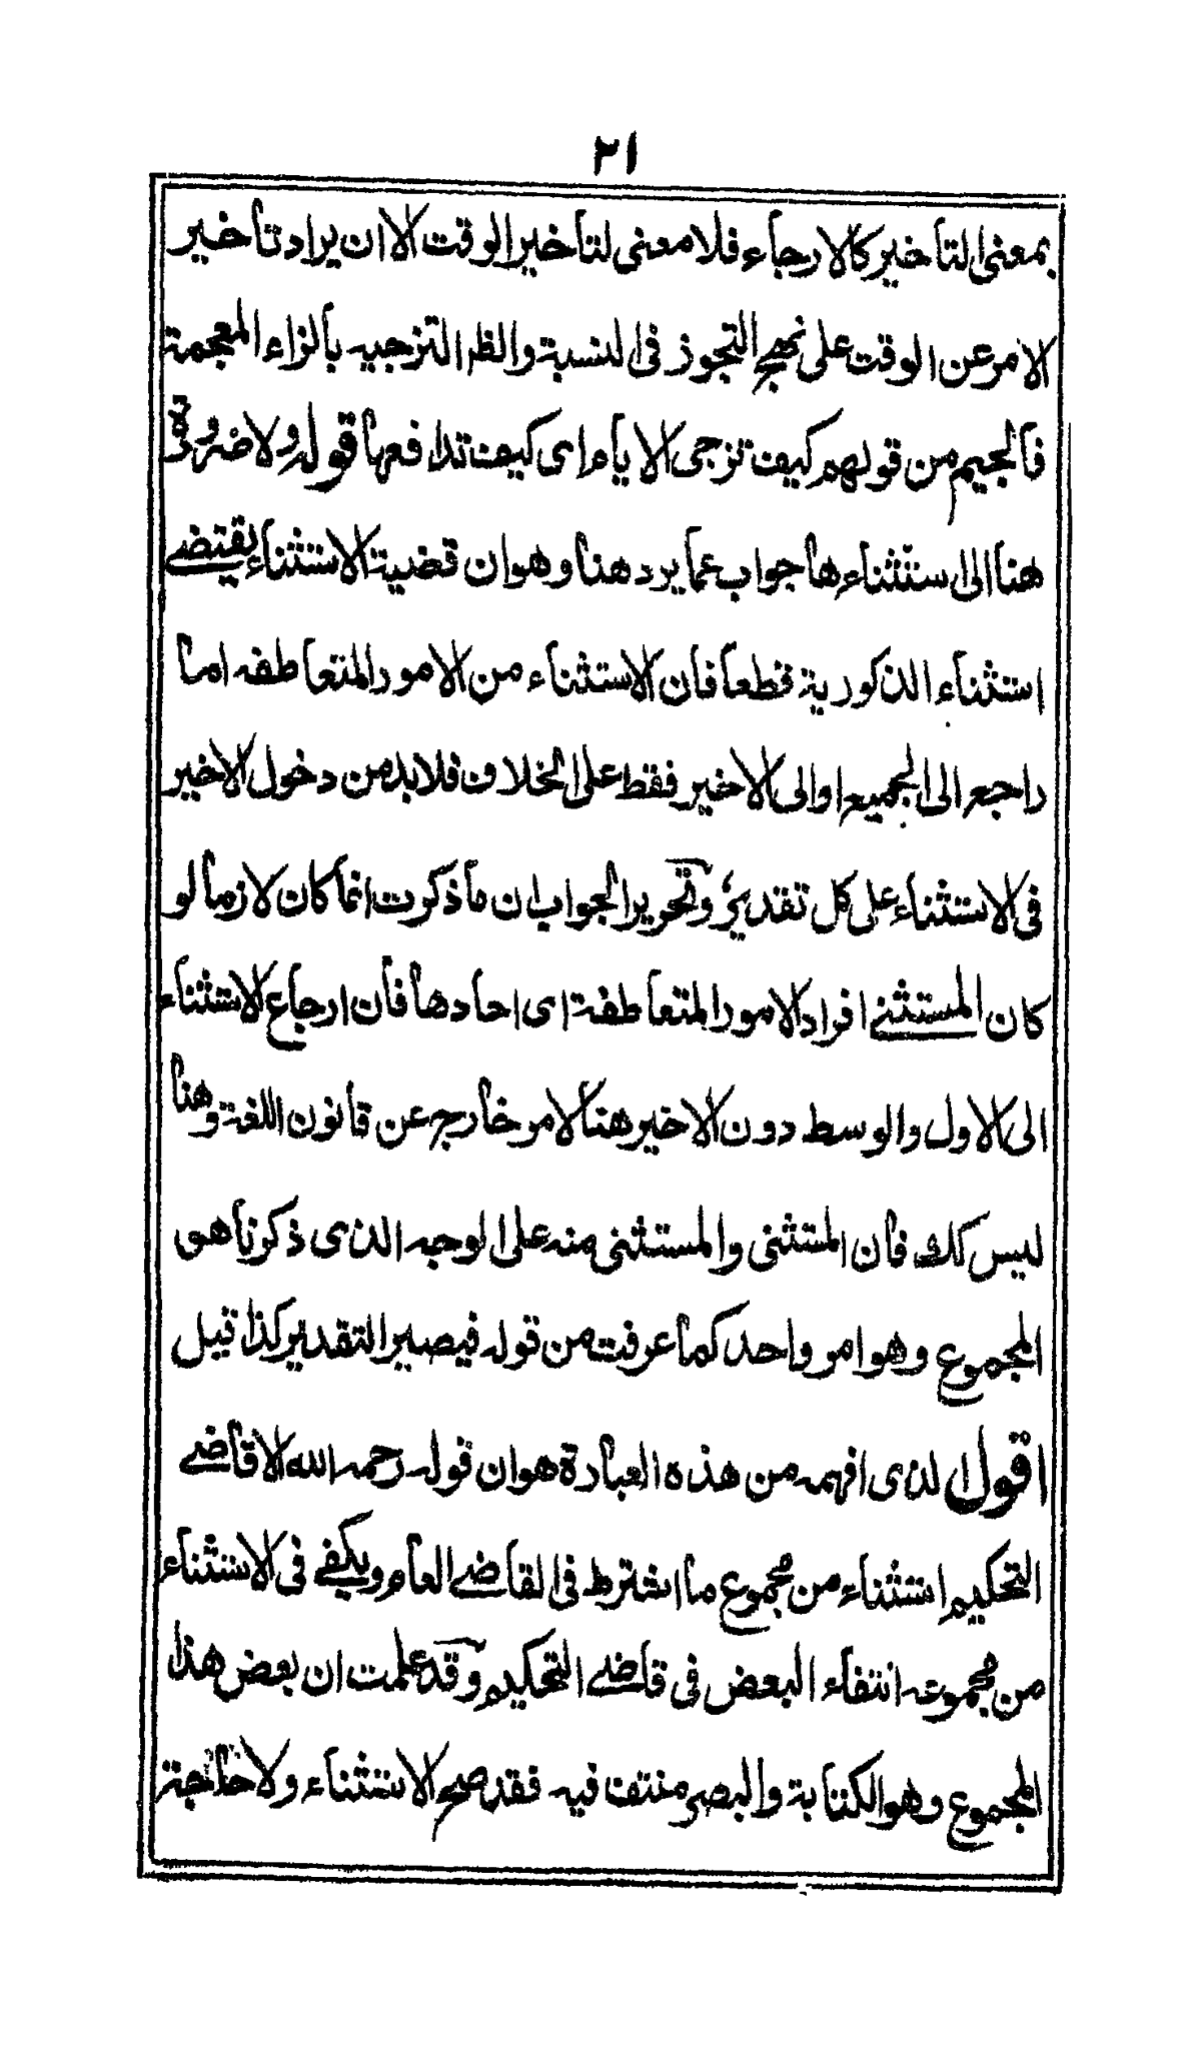 ٢١
بمعنى التأخير كالارجاء فلا معنى لتأخير الوقت الا ان يراد تأخير
الامر عن الوقت على نهج التجوز فى النسبة والظ التزجيه بالزاء المعجمة
فالجيم من قولهم كيف تزجى الايام اى كيف تدافعها قوله ولا ضرورة
هنا الى استثناءها جواب عما يرد هنا وهو ان قضية الاستثناء يقتضے
استثناء الذكورية قطعا فان الاستثناء من الامور المتعاطفه اما
راجع الى الجميع او الى الاخير فقط على الخلاف فلابد من دخول الاخير
فى الاستثناء على كل تقدير وتحرير الجواب ان ما ذكرت انما كان لازما لو
كان المستثنے افراد الامور المتعاطفة اى احادها فان ارجاع الاستثناء
الى الاول والوسط دون الاخير هنا لامر خارج عن قانون اللغة وهنا
ليس كك فان المتثنى والمستثنى منه على الوجه الذى ذكرنا هو
المجموع وهو امر واحد كما عرفت من قوله فيصير التقدير كذا قيل
اقول الذى افهمه من هذه العبارة هو ان قوله رحمه الله الا قاضے
التحكيم استثناء من مجموع ما اشترط فى القاضے العام ويكفے فى الاستثناء
من مجموعه انتفاء البعض فى قاضے التحكيم وقد علمت ان بعض هذا
المجموع وهو الكتابة والبصر منتف فيه فقد صح الاستثناء ولا حاجة